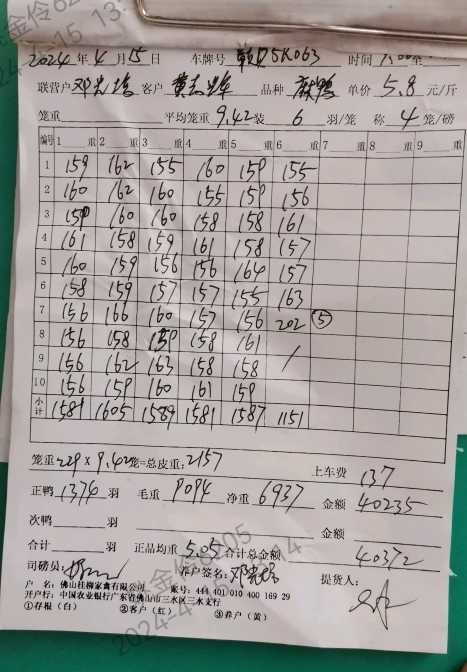 2024 年 4 月 15 日 车牌号 赣D5K063 时间 7:00至
联营户 客户 品种 麻鸭 单价 5.8 元/斤
笼重 平均笼重 9.42 装 6 羽/笼 称 4 笼/磅
编号 1 重 2 重 3 重 4 重 5 重 6 重 7 重 8 重 9 重
1 159 162 155 160 159 155
2 160 162 160 155 159 156
3 159 160 160 158 158 161
4 161 158 159 161 158 157
5 160 159 156 156 164 157
6 158 159 157 157 155 163
7 156 166 160 157 156 202 ⑤
8 156 158 159 158 161 /
9 156 162 163 158 158
10 156 159 160 161 159
小计 1581 1605 1589 1581 1587 1151
笼重 229 × 9.42 笼=总皮重: 2157 上车费 137
正鸭 1374 羽 毛重 9094 净重 6937 金额 40235
次鸭 羽 金额
合计 羽 正品均重 5.05 合计总金额 40372
司磅员: 养户签名: 提货人:
户 名: 佛山桂柳家禽有限公司 账号: 444 401 010 400 169 29
开户行: 中国农业银行广东省佛山市三水区三水支行
①存根(白) ②客户(红) ③养户(黄)